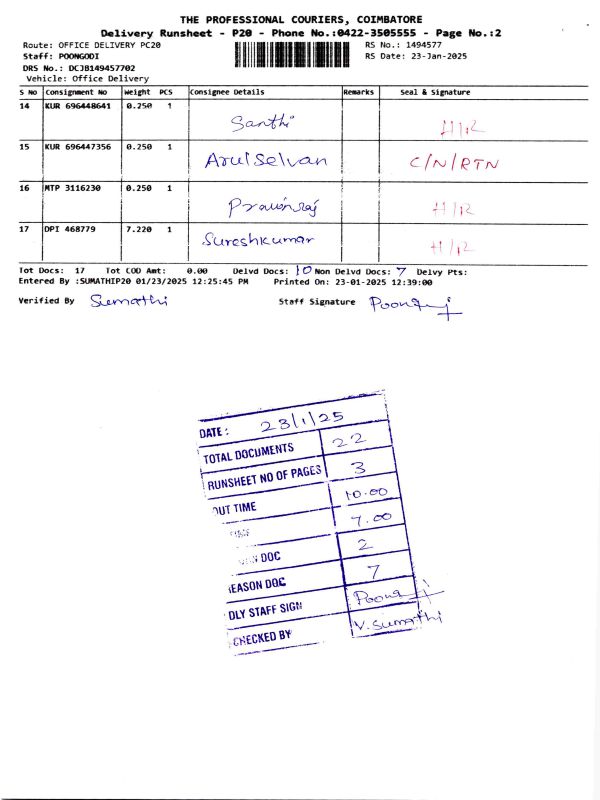 THE PROFESSIONAL COURIERS, COIMBATORE
Delivery Runsheet - P20 - Phone No.:0422-3505555 - Page No.:2
Route: OFFICE DELIVERY PC20 RS No.: 1494577
Staff: POONGODI RS Date: 23-Jan-2025
DRS No.: DCJB149457702
Vehicle: Office Delivery
S No Consignment No Weight PCS Consignee Details Remarks Seal & Signature
14 KUR 696448641 0.250 1
Santhi H/R
15 KUR 696447356 0.250 1
Arulselvan C/N/RTN
16 MTP 3116230 0.250 1
Pravinraj H/R
17 DPI 468779 7.220 1
Sureshkumar H/R
Tot Docs: 17 Tot COD Amt: 0.00 Delvd Docs: 10 Non Delvd Docs: 7 Delvy Pts:
Entered By :SUMATHIP20 01/23/2025 12:25:45 PM Printed On: 23-01-2025 12:39:00
Verified By Sumathi Staff Signature
DATE : 23/1/25
TOTAL DOCUMENTS 22
RUNSHEET NO OF PAGES 3
OUT TIME 10.00
7.00
DOC 2
REASON DOC 7
DLY STAFF SIGN
CHECKED BY V. Sumathi